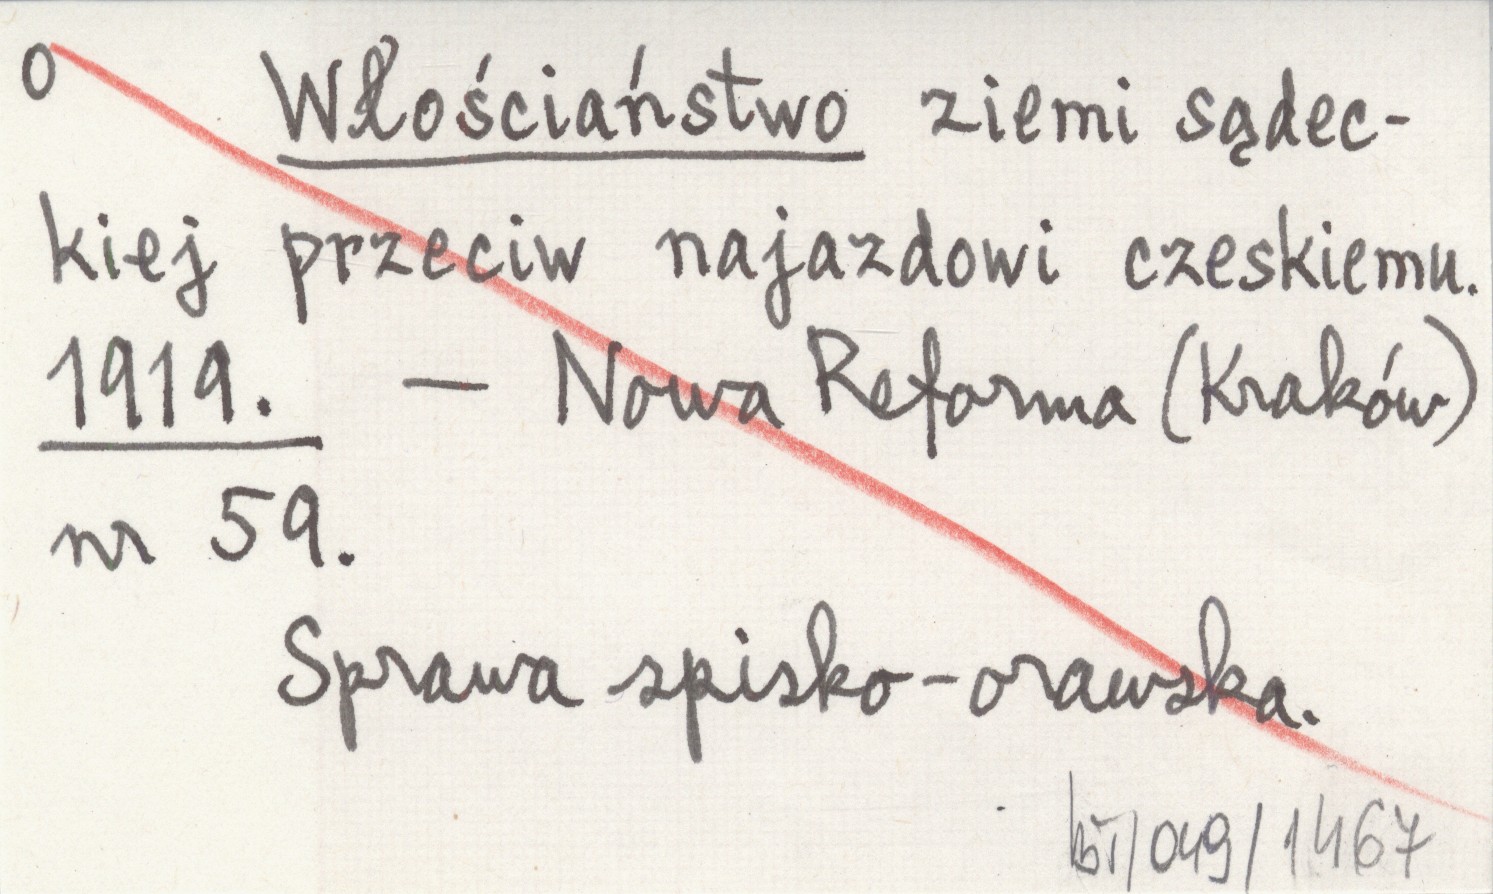 O Włościaństwo ziemi sądec-
kiej przeciw najazdowi czeskiemu.
1919. — Nowa Reforma (Kraków)
nr 59.
Sprawa spisko-orawska.
/049/1467